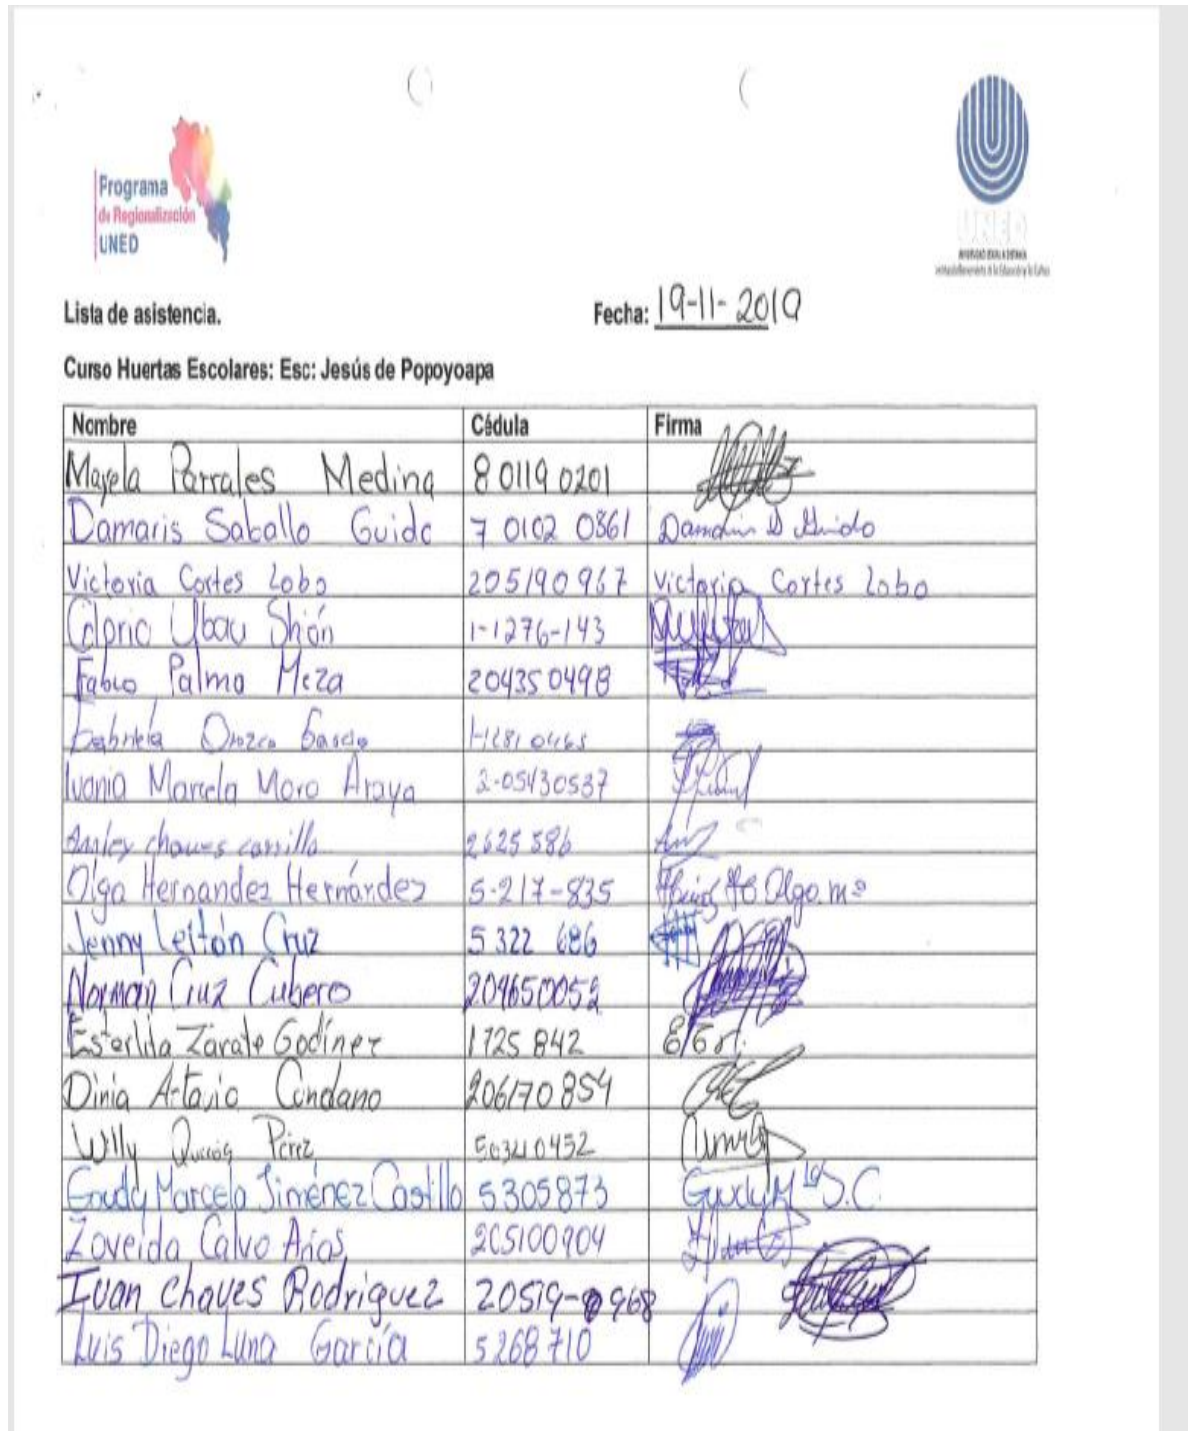 Programa
de Regionalización
UNED
UNED
Lista de asistencia.
Fecha: 19-11-2019
Curso Huertas Escolares: Esc: Jesús de Popoyoapa
Nombre Cédula Firma
Mayela Parrales Medina 8 0119 0201
Damaris Saballo Guido 7 0102 0361 Guido
Victoria Cortes Lobo 205190967 Victoria Cortes Lobo
Ubau Shión 1-1276-143
Fabio Palma Meza 204350498
Gabriela Orozco
Ivania Marcela Mora Araya 2-05430537
chaves carrillo 2625586
Olga Hernandez Hernández 5-217-835 Olga. Mª
Jenny Leitón Cruz 5 322 686
Norman Cruz Cubero
Esterlita Zárate Godínez 1725 842
Dinia Cundano 206170854
Willy Pérez 50340452
Marcela Jiménez Castillo 5305873
Zoveida Calvo Arias 205100904
Ivan Chaves Rodriguez 20519-0968
Luis Diego Luna García 5268710